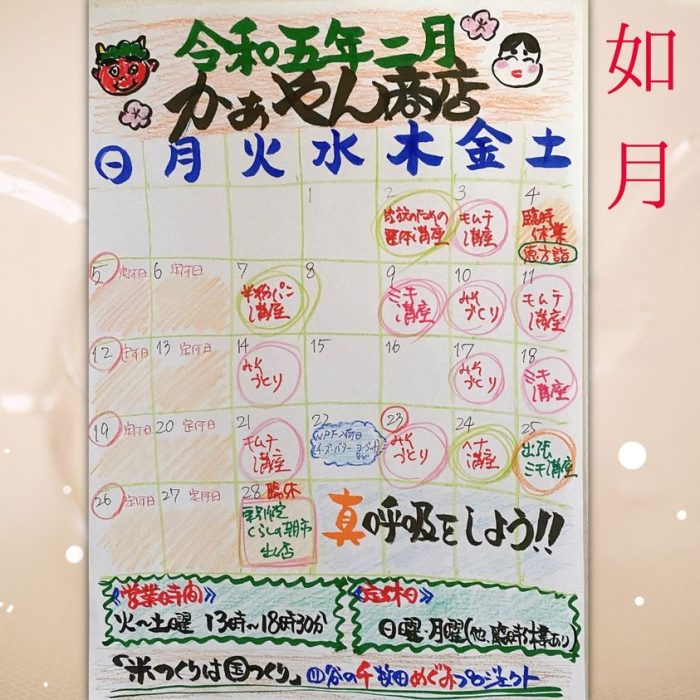 令和五年二月
かぁやん商店
如月
日 月 火 水 木 金 土
1 2 3 4
整体講座
モムテ講座
臨時休業
恵方詣
5 定休日 6 定休日 7 8 9 10 11
米粉パン講座
ミキ講座
みそづくり
モムテ講座
12 定休日 13 定休日 14 15 16 17 18
みそづくり
みそづくり
ミキ講座
19 定休日 20 定休日 21 22 23 24 25
モムテ講座
入荷日
チーズ・バター・ヨーグルト
みそづくり
ヘナ講座
出張ミキ講座
26 定休日 27 定休日 28 臨休
くらしの朝市出店
真呼吸をしよう!!
《営業時間》
火〜土曜 13時〜18時30分
《定休日》
日曜・月曜(他、臨時休業あり)
「米つくりは国つくり」四谷の千枚田めぐみプロジェクト